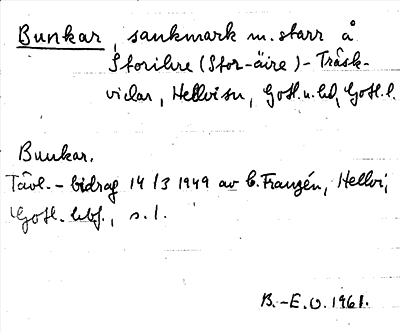 Bunkar, sankmark m. starr å
Storihre (Stor-äire) - Träsk-
vidar, Hellvi sn, Gotl. n. hd, Gotl. l.
Bunkar.
Tävl. - bidrag 14/3 1949 av C. Franzén, Hellvi,
Gotl. hbf., s. 1.
B.-E.O. 1961.